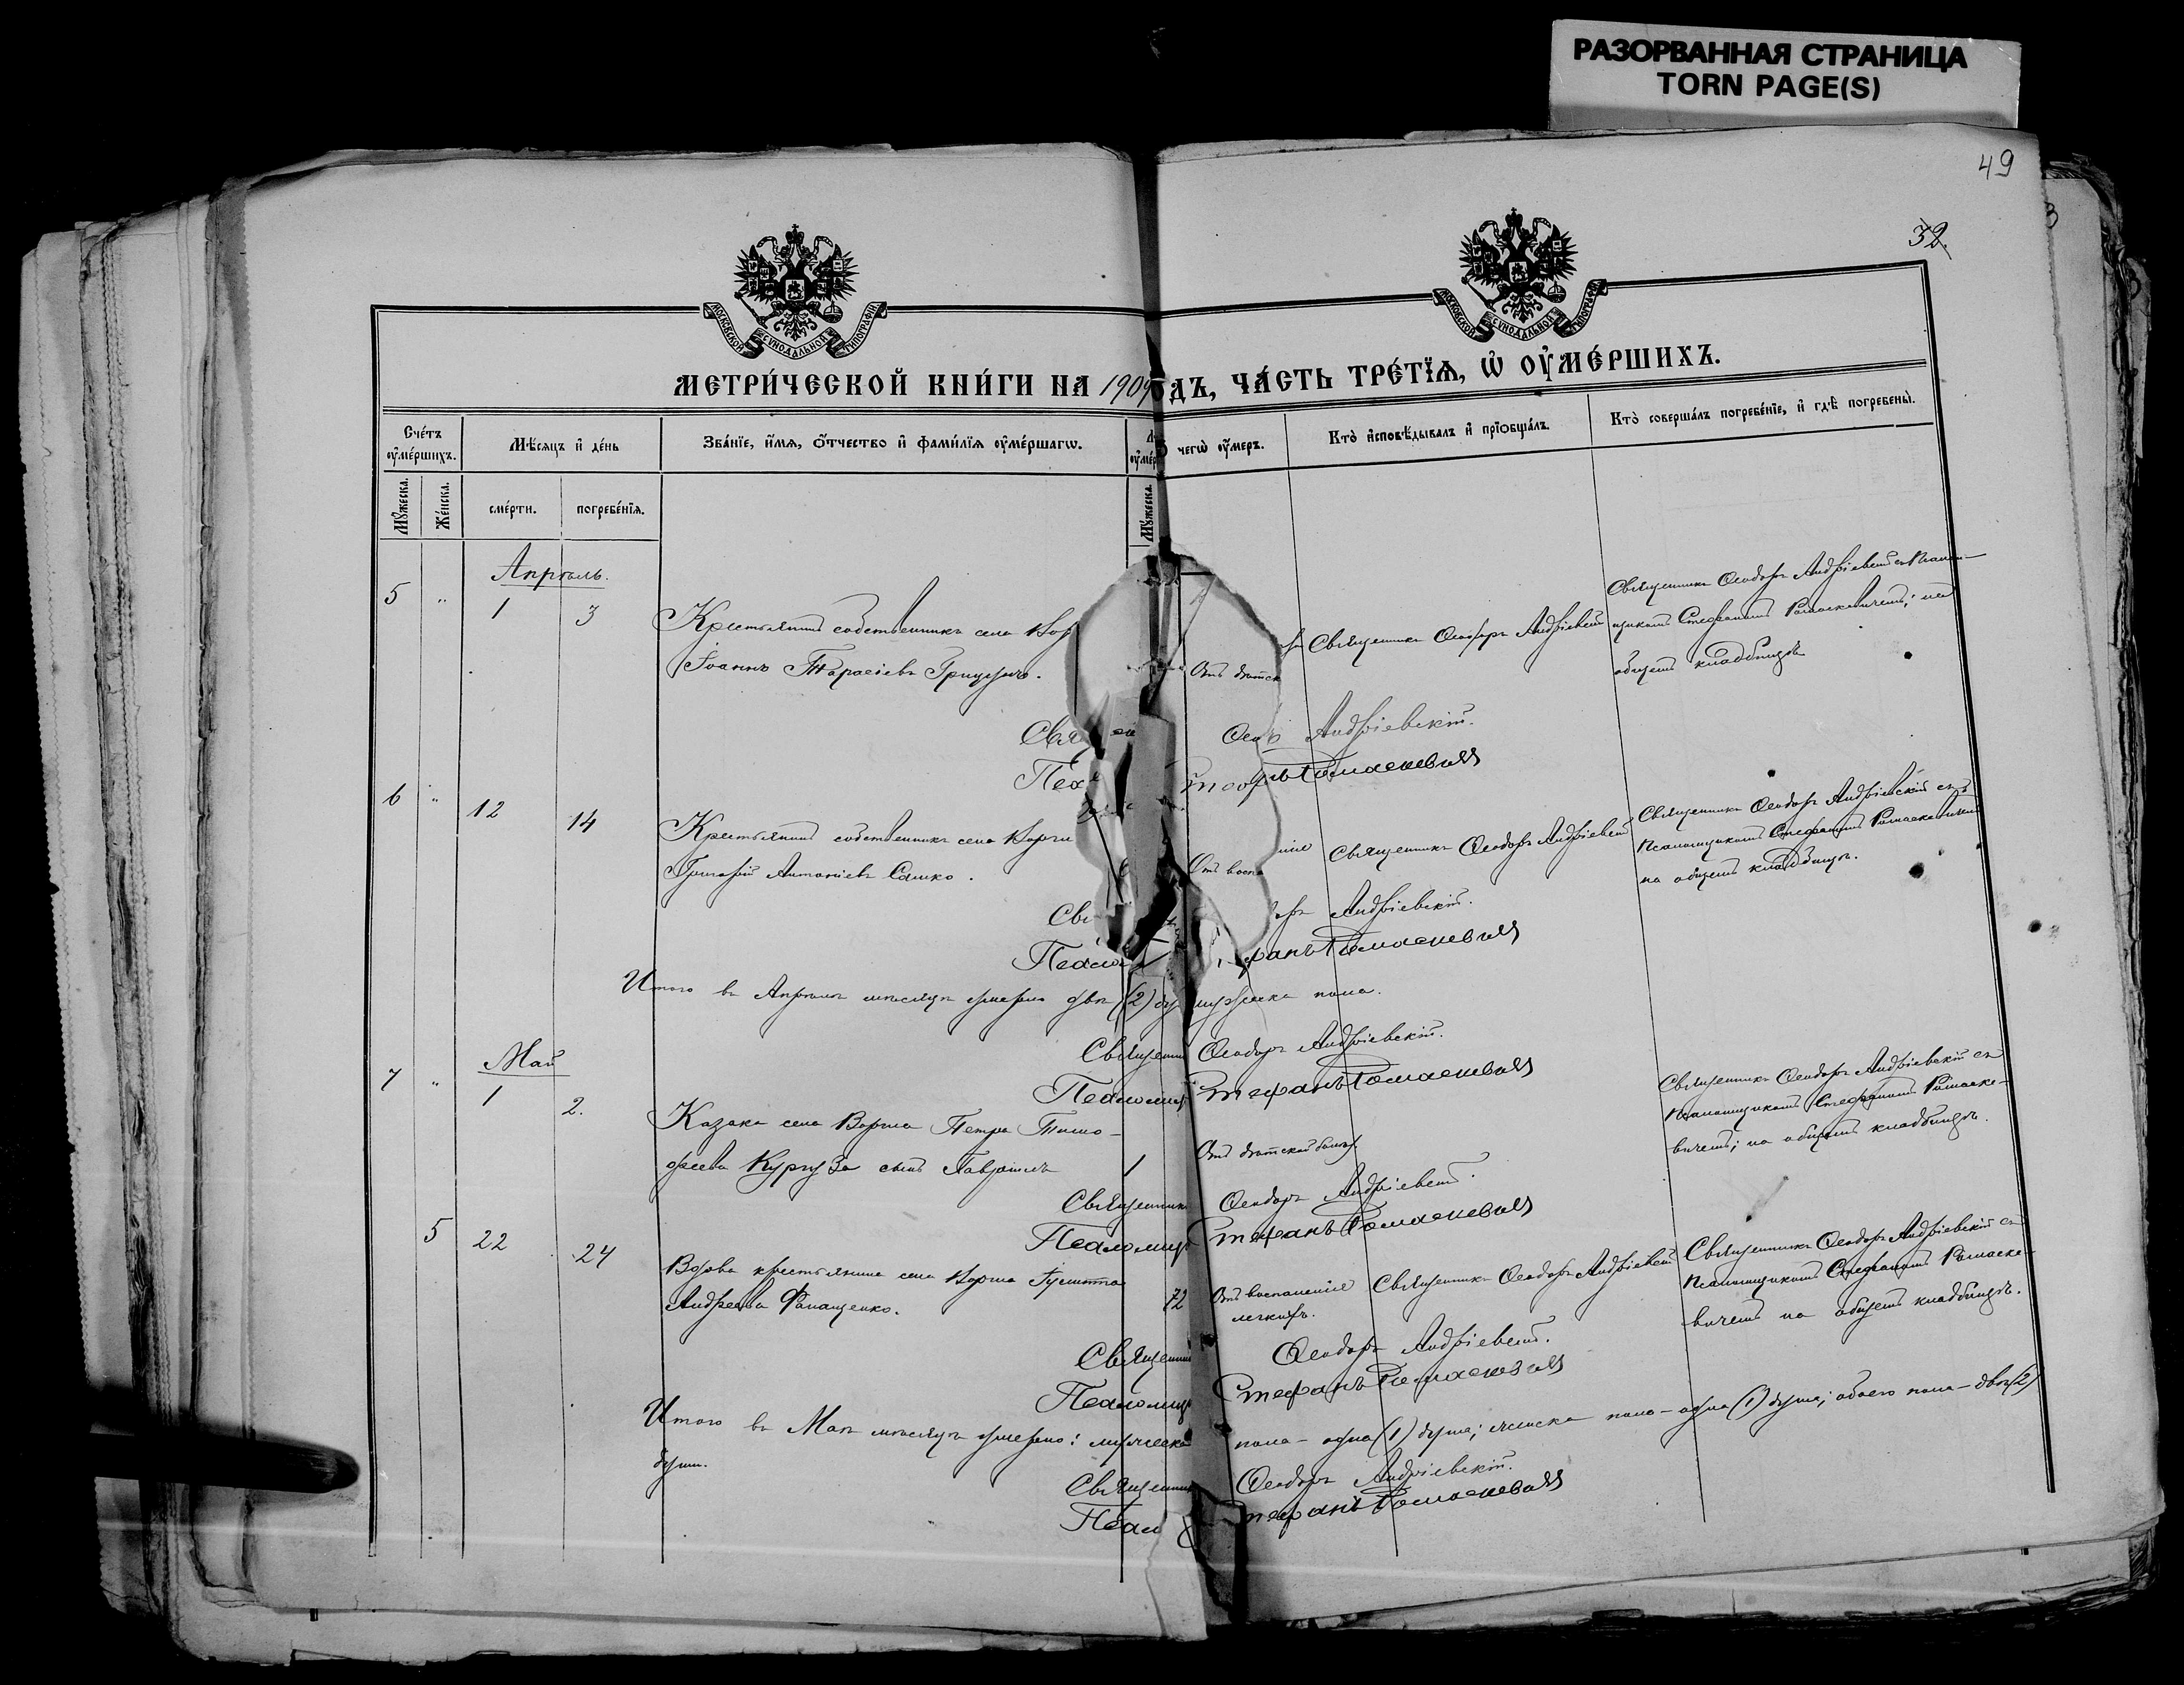 РАЗОРВАННАЯ СТРАНИЦА
TORN PAGE(S)
49
32.
МОСКОВСКОЙ СѴНОДАЛЬНОЙ ТИПОГРАФІИ
МОСКОВСКОЙ СѴНОДАЛЬНОЙ ТИПОГРАФІИ
МЕТРИ́ЧЕСКОЙ КНИ́ГИ НА 1909 ОДЪ, ЧА́СТЬ ТРЕ́ТЇѦ, Ѡ҆ ОУ҆МЕ́РШИХЪ.
Сче́тъ ᲂу҆ме́ршихъ.
Мѣ́сѧцъ и҆ де́нь
Зва́нїе, и҆́мѧ, ѻ҆́тчество и҆ фами́лїѧ ᲂу҆ме́ршагѡ.
чегѡ̀ ᲂу҆́меръ.
Кто̀ и҆сповѣ́дывалъ и҆ прїѡбща́лъ.
Кто̀ соверша́лъ погребе́нїе, и҆ гдѣ̀ погребены̀.
Мꙋ́жеска.
Же́нска.
сме́рти.
погребе́нїѧ.
Мꙋ́жеска.
Апрѣль.
5 " 1 3
Крестьянинъ собственникъ села Вор
Іоаннъ Тарасіевъ Грицунъ.
Отъ дѣтск
Священникъ Ѳеодоръ Андріевскій
Священникъ Ѳеодоръ Андріевскій съ Псалом-
щикомъ Стефаномъ Ромаскевичемъ; на
общемъ кладбищѣ
Свя Ѳео Андріевскій.
Пса Ромаскевичъ
6 " 12 14
Крестьянинъ собственникъ села Ворги
Григорій Антоніевъ Сашко.
Отъ воспа ніе
Священникъ Ѳеодоръ Андріевскій
Священникъ Ѳеодоръ Андріевскій съ
Псаломщикомъ Стефаномъ Ромаскевичемъ
на общемъ кладбищѣ.
Св оръ Андріевскій.
Псало фанъ Ромаскевичъ
Итого въ Апрѣлѣ мѣсяцѣ умерло двѣ (2) ду мужеска пола.
Священни Ѳеодоръ Андріевскій.
Псаломщ Стефанъ Ромаскевичъ
Май
7 " 1 2.
Козака села Воргла Петра Тимо-
феева Кургуза сынъ Гавріилъ
1
Отъ дѣтской болѣз.
Священникъ Ѳеодоръ Андріевскій съ
Псаломщикомъ Стефаномъ Ромаске-
вичемъ; на общемъ кладбищѣ.
Священникъ Ѳеодоръ Андріевскій.
Псаломщ Стефанъ Ромаскевичъ
5 22 24
Вдова крестьянина села Воргла Іулитта
Андреева Фанащенко.
72
Отъ воспаленія
легкихъ.
Священникъ Ѳеодоръ Андріевскій
Священникъ Ѳеодоръ Андріевскій съ
Псаломщикомъ Стефаномъ Ромаске-
вичемъ на общемъ кладбищѣ.
Священни Ѳеодоръ Андріевскій.
Псаломщ Стефанъ Ромаскевичъ
Итого въ Маѣ мѣсяцѣ умерло: мужеска пола - одна (1) душа; женска пола - одна (1) душа; обоего пола - двѣ (2)
души.
Священни Ѳеодоръ Андріевскій.
Псал тефанъ Ромаскевичъ